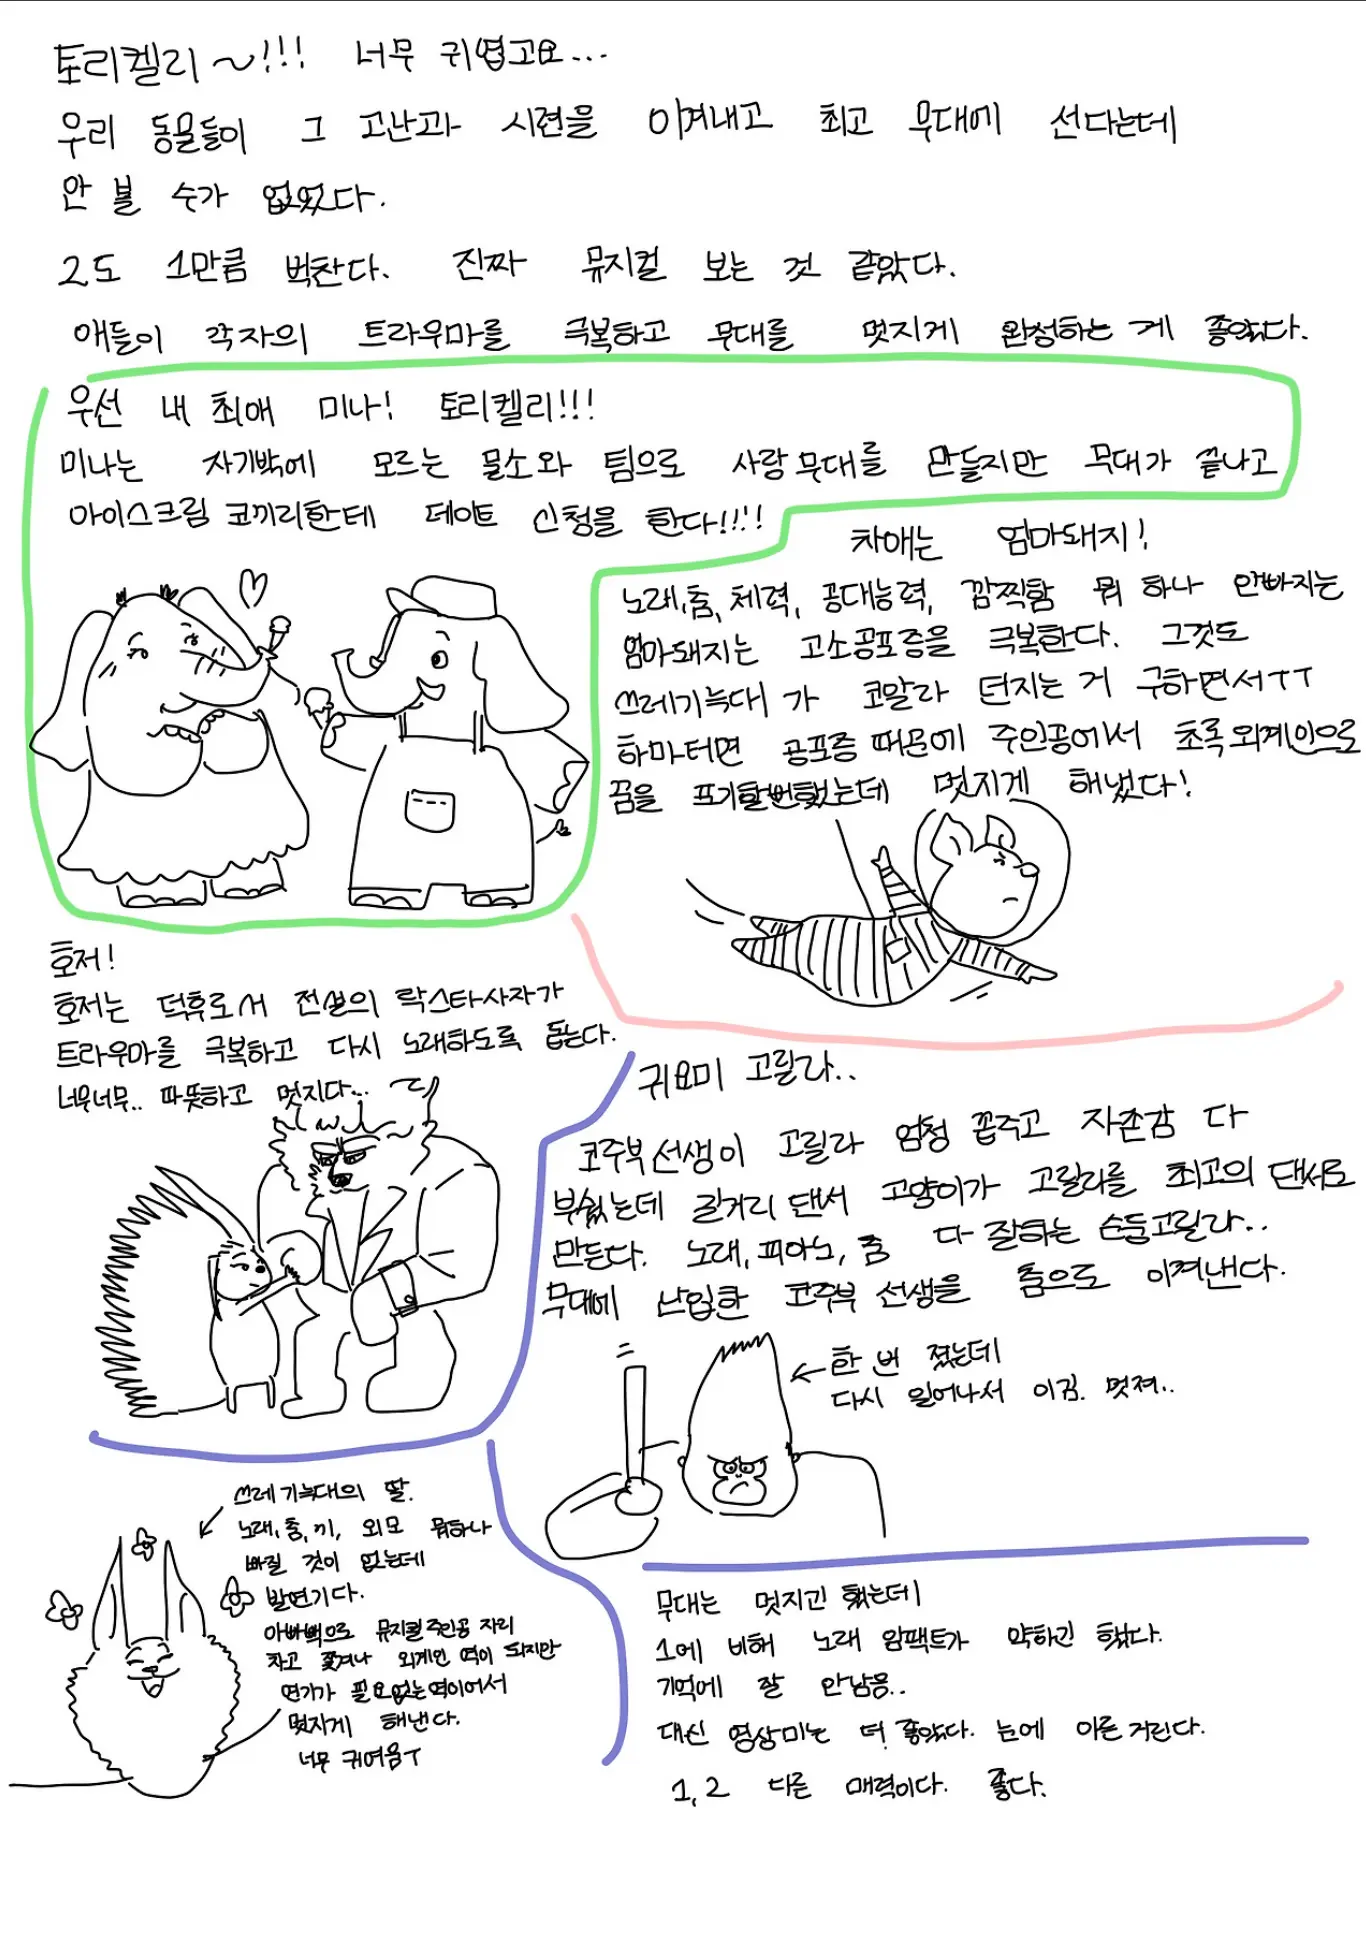 토리켈리~!!! 너무 귀엽고요...
우리 동물들이 그 고난과 시련을 이겨내고 최고 무대에 선다는데
안 볼 수가 없었다.
2도 1만큼 벅찬다. 진짜 뮤지컬 보는 것 같았다.
애들이 각자의 트라우마를 극복하고 무대를 멋지게 완성하는 게 좋았다.
우선 내 최애 미나! 토리켈리!!!
미나는 자기밖에 모르는 물소와 팀으로 사랑무대를 만들지만 무대가 끝나고
아이스크림 코끼리한테 데이트 신청을 한다!!!!
차애는 엄마돼지!
노래, 춤, 체력, 공대능력, 깜찍함 뭐 하나 안빠지는
엄마돼지는 고소공포증을 극복한다. 그것도
쓰레기늑대가 코알라 던지는 거 구하면서ㅜㅜ
하마터면 공포증 때문에 주인공에서 초록외계인으로
꿈을 포기할뻔했는데 멋지게 해냈다!
호저!
호저는 덕후로서 전설의 락스타사자가
트라우마를 극복하고 다시 노래하도록 돕는다.
너무너무.. 따뜻하고 멋지다...
귀요미 고릴라..
코주부선생이 고릴라 엄청 꼽주고 자존감 다
부쉈는데 길거리 댄서 고양이가 고릴라를 최고의 댄서로
만든다. 노래, 피아노, 춤 다 잘하는 순둥고릴라..
무대에 난입한 코주부 선생을 춤으로 이겨낸다.
한 번 졌는데
다시 일어나서 이김. 멋져..
쓰레기늑대의 딸.
노래, 춤, 끼, 외모 뭐하나
빠질 것이 없는데
발연기다.
아빠빽으로 뮤지컬주인공 자리
차고 쫓겨나 외계인 역이 되지만
연기가 필요없는역이어서
멋지게 해낸다.
너무 귀여움ㅜ
무대는 멋지긴 했는데
1에 비해 노래 임팩트가 약하긴 했다.
기억에 잘 안남음..
대신 영상미는 더 좋았다. 눈에 아른거린다.
1, 2 다른 매력이다. 좋다.